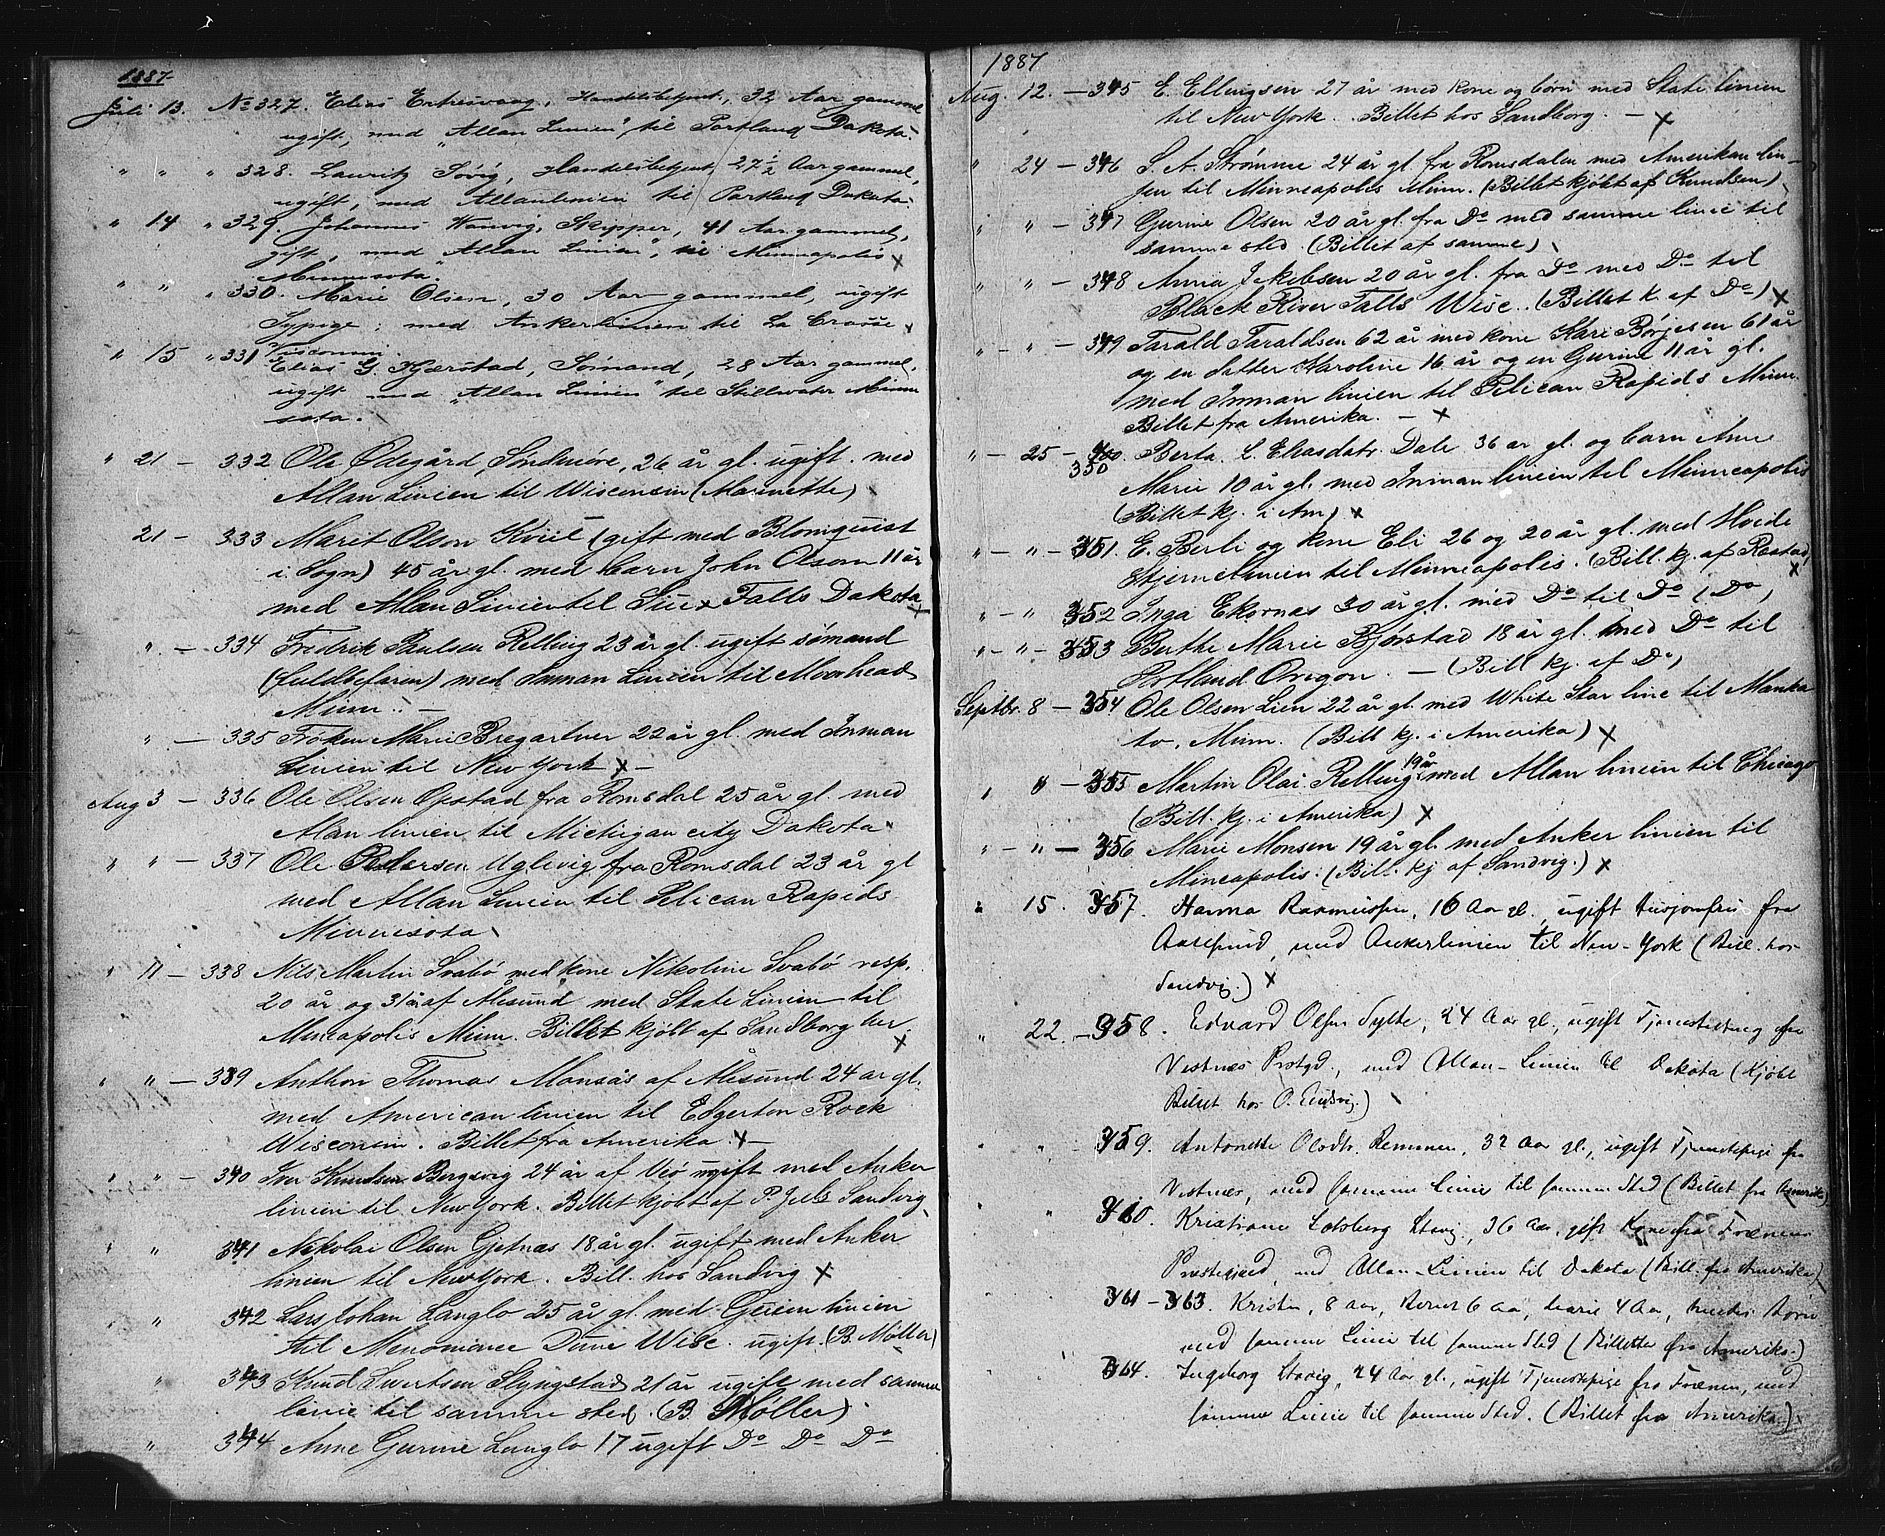 1887
Juli 13. No 327. Elias Erkesvaag, Handelsbetjent, 32 Aar gammel
ugift, med "Allan Linien" til Portland Dakota
" " " 328. Lauritz Søvig, Handelsbetjent, 27 1/2 Aar gammel,
ugift, med Allanlinien til Portland Dakota.
" 14 " 329. Johannes Wanvig, Skipper, 41 Aar gammel,
gift, med "Allan Linien", til Minneapolis x
Minnesota.
" " " 330. Marie Olsen, 30 Aar gammel, ugift
Sypige; med Ankerlinien til La Crosse
Visconsin.
" 15 " 331 Elias G. Kjærstad, Sømand, 28 Aar gammel,
ugift med "Allan Linien" til Stillwater Minne
sota.
" 21 - 332 Ole Ødegård, Søndmøre, 26 år gl. ugift. med
Allan Linien til Wisconsin (Marinette)
21 - 333 Marit Olson Kviil (gift med Blomquist
i Sogn) 45 år gl. med barn John Olson 11 år
med Allan Linien til Siux Falls Dakota x
" - 334 Fredrik Paulsen Relling 23 år gl. ugift sømand
(fuldbefaren) med Inman Linien til Moorhead
Minn. -
" - 335 Frøken Marie Bregartner 22 år gl. med Inman
Linien til New York x -
Aug 3 - 336 Ole Olsen Opstad fra Romsdal 25 år gl. med
Alan linien til Michigan city Dakota
" " - 337 Ole Pedersen Uglevig fra Romsdal 23 år gl
med Allan Linien til Pelican Rapids
Minnesota
" 11 - 338 Nils Martin Svabø med kone Nikoline Svabø resp.
20 år og 31 år af Ålesund med State Linien til
Mineapolis Minn. Billet kjöbt af Sandborg her. x
" " - 339 Anthon Thomas Monsås af Ålesund 24 år gl.
med American linien til Edgerton Rock
Wisconsin. Billet fra Amerika x -
" " - 340 Iver Knudsen Bugsvig 24 år af Veø ugift med Anker
linien til New York. Billet kjöbt af P. Juls Sandvig
" " 341 Nikolai Olsen Gjetnæs 18 år gl. ugift med Anker
linien til New York. Bill. hos Sandvig x
" " 342 Lars Johan Langlo 25 år gl. med Geien linien
til Menominee Dunn Wisc. ugift. (B. Møller)
" 343 Knud Sivertsen Slyngstad 21 år ugift med samme
linie til samme sted. (B. Møller)
" 344 Anne Gurine Langlo 17 ugift Do Do Do
1887
Aug. 12. - 345 E. Ellingsen 27 år med kone og børn med State linien
til New York. Billet hos Sandborg. - x
" 24 - 346 S. A. Strømme 24 år gl. fra Romsdalen med Amerikan lin-
jen til Minneapolis Minn. (Billet kjöbt af Knudsen)
" " - 347 Gurine Olsen 20 år gl. fra Do med samme linie til
samme sted. (Billet af samme)
" " - 348 Anna Jakobsen 20 år gl. fra Do med Do til
Black River Falls Wisc.. (Billet k. af Do) x
" - " - 349 Tarald Taraldsen 62 år med kone Kari Børjesen 61 år
og en datter Karoline 16 år og en Gurine 11 år gl.
med Inman linien til Pelican Rapids Minn.
Billet fra Amerika. - x
" - 25 - 350 Berta L. Eliasdatr. Dale 36 år gl. og barn Ane
Marie 10 år gl. med Inman linien til Minneapolis
(Billet kj. i Am) x
" - " - 351 E. Berli og kone Eli 26 og 20 år gl. med Hvide
stjernelinien til Minneapolis. (Bill. kj. af Rastad) x
" - " 352 Inga Ekornæs 30 år gl. med Do til Do (Do)
" - " - 353 Berthe Marie Bjørstad 18 år gl. med Do til
Portland Oregon. - (Bill kj. af Do)
Septbr. 8 - 354 Ole Olsen Lien 22 år gl med White Star line til Manka
to, Minn. (Bill kj. i Amerika) x
" " - 355 Martin Olai Relling 19 år med Allan linien til Chicago
(Bill. kj. i Amerika) x
" - " - 356 Marie Monsen 19 år gl. med Anker linien til
Mineapolis. (Bill. kj af Sandvig.) x
" 15. 357. Hanna Rasmussen, 16 Aar gl., ugift Husjomfru fra
Aalesund, med Ankerlinien til New-York (Bill. hos
Sandvig.) x
" 22. - 358. Edvard Olsen Sylte, 24 Aar gl., ugift Tjenestedreng fra
Vestnæs Prstgd., med Allan-Linien til Dakota (Kjöbt
Billet hos O. Eidsvig.)
" " 359. Antonette Olsdtr. Remmen, 32 Aar gl., ugift Tjenestepige fra
Vestnæs, med samme Linie til samme Sted (Billet fra Amerika)
" 360. Kristiane Stavig, 36 Aar, gift Kone fra Frænen
Prestegjeld, med Allan-Linien til Dakota (Bill. fra Amerika)
361 - 363. Kristen, 8 Aar, Bernt 6 Aar, Marie 4 Aar, hendes Børn
med samme Linie til samme Sted (Billetter fra Amerika.)
364. Ingeborg Stavig, 24 Aar gl., ugift Tjenestepige fra Frænen, med
samme Linie til samme Sted. (Billet fra Amerika.)